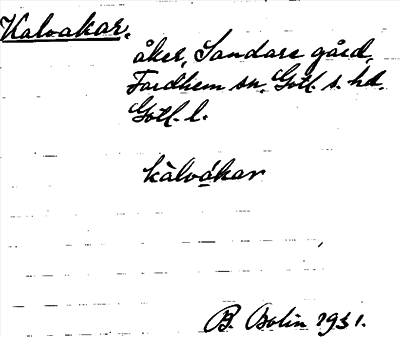 Kalvakar.
åker, Sandare gård,
Fardhem sn. Gotl. s. hd.
Gotl. l.
kàlvákar
B. Bolin 1931.